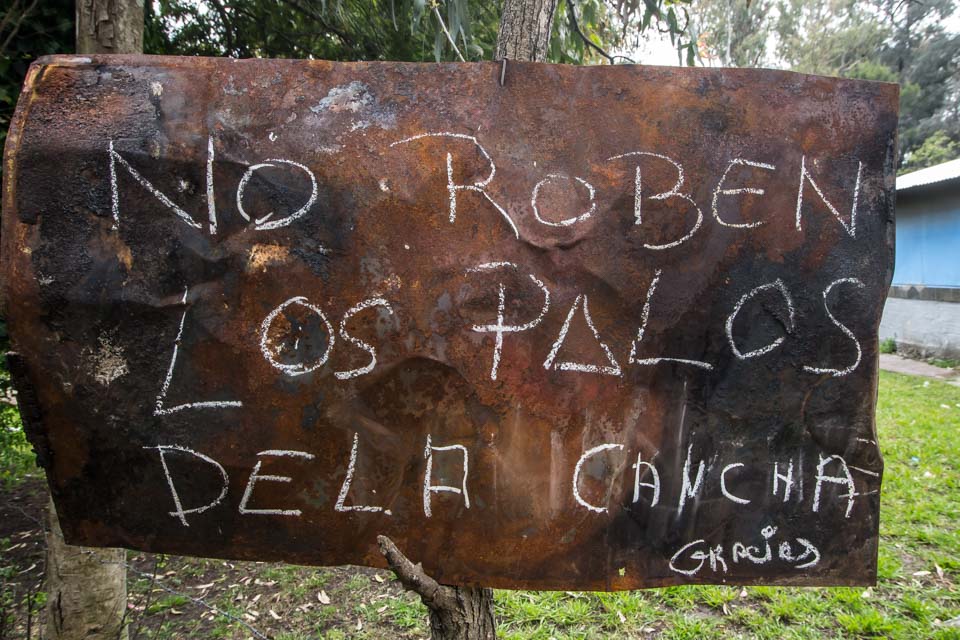 NO ROBEN
LOS PALOS
DE LA CANCHA
GRACIAS